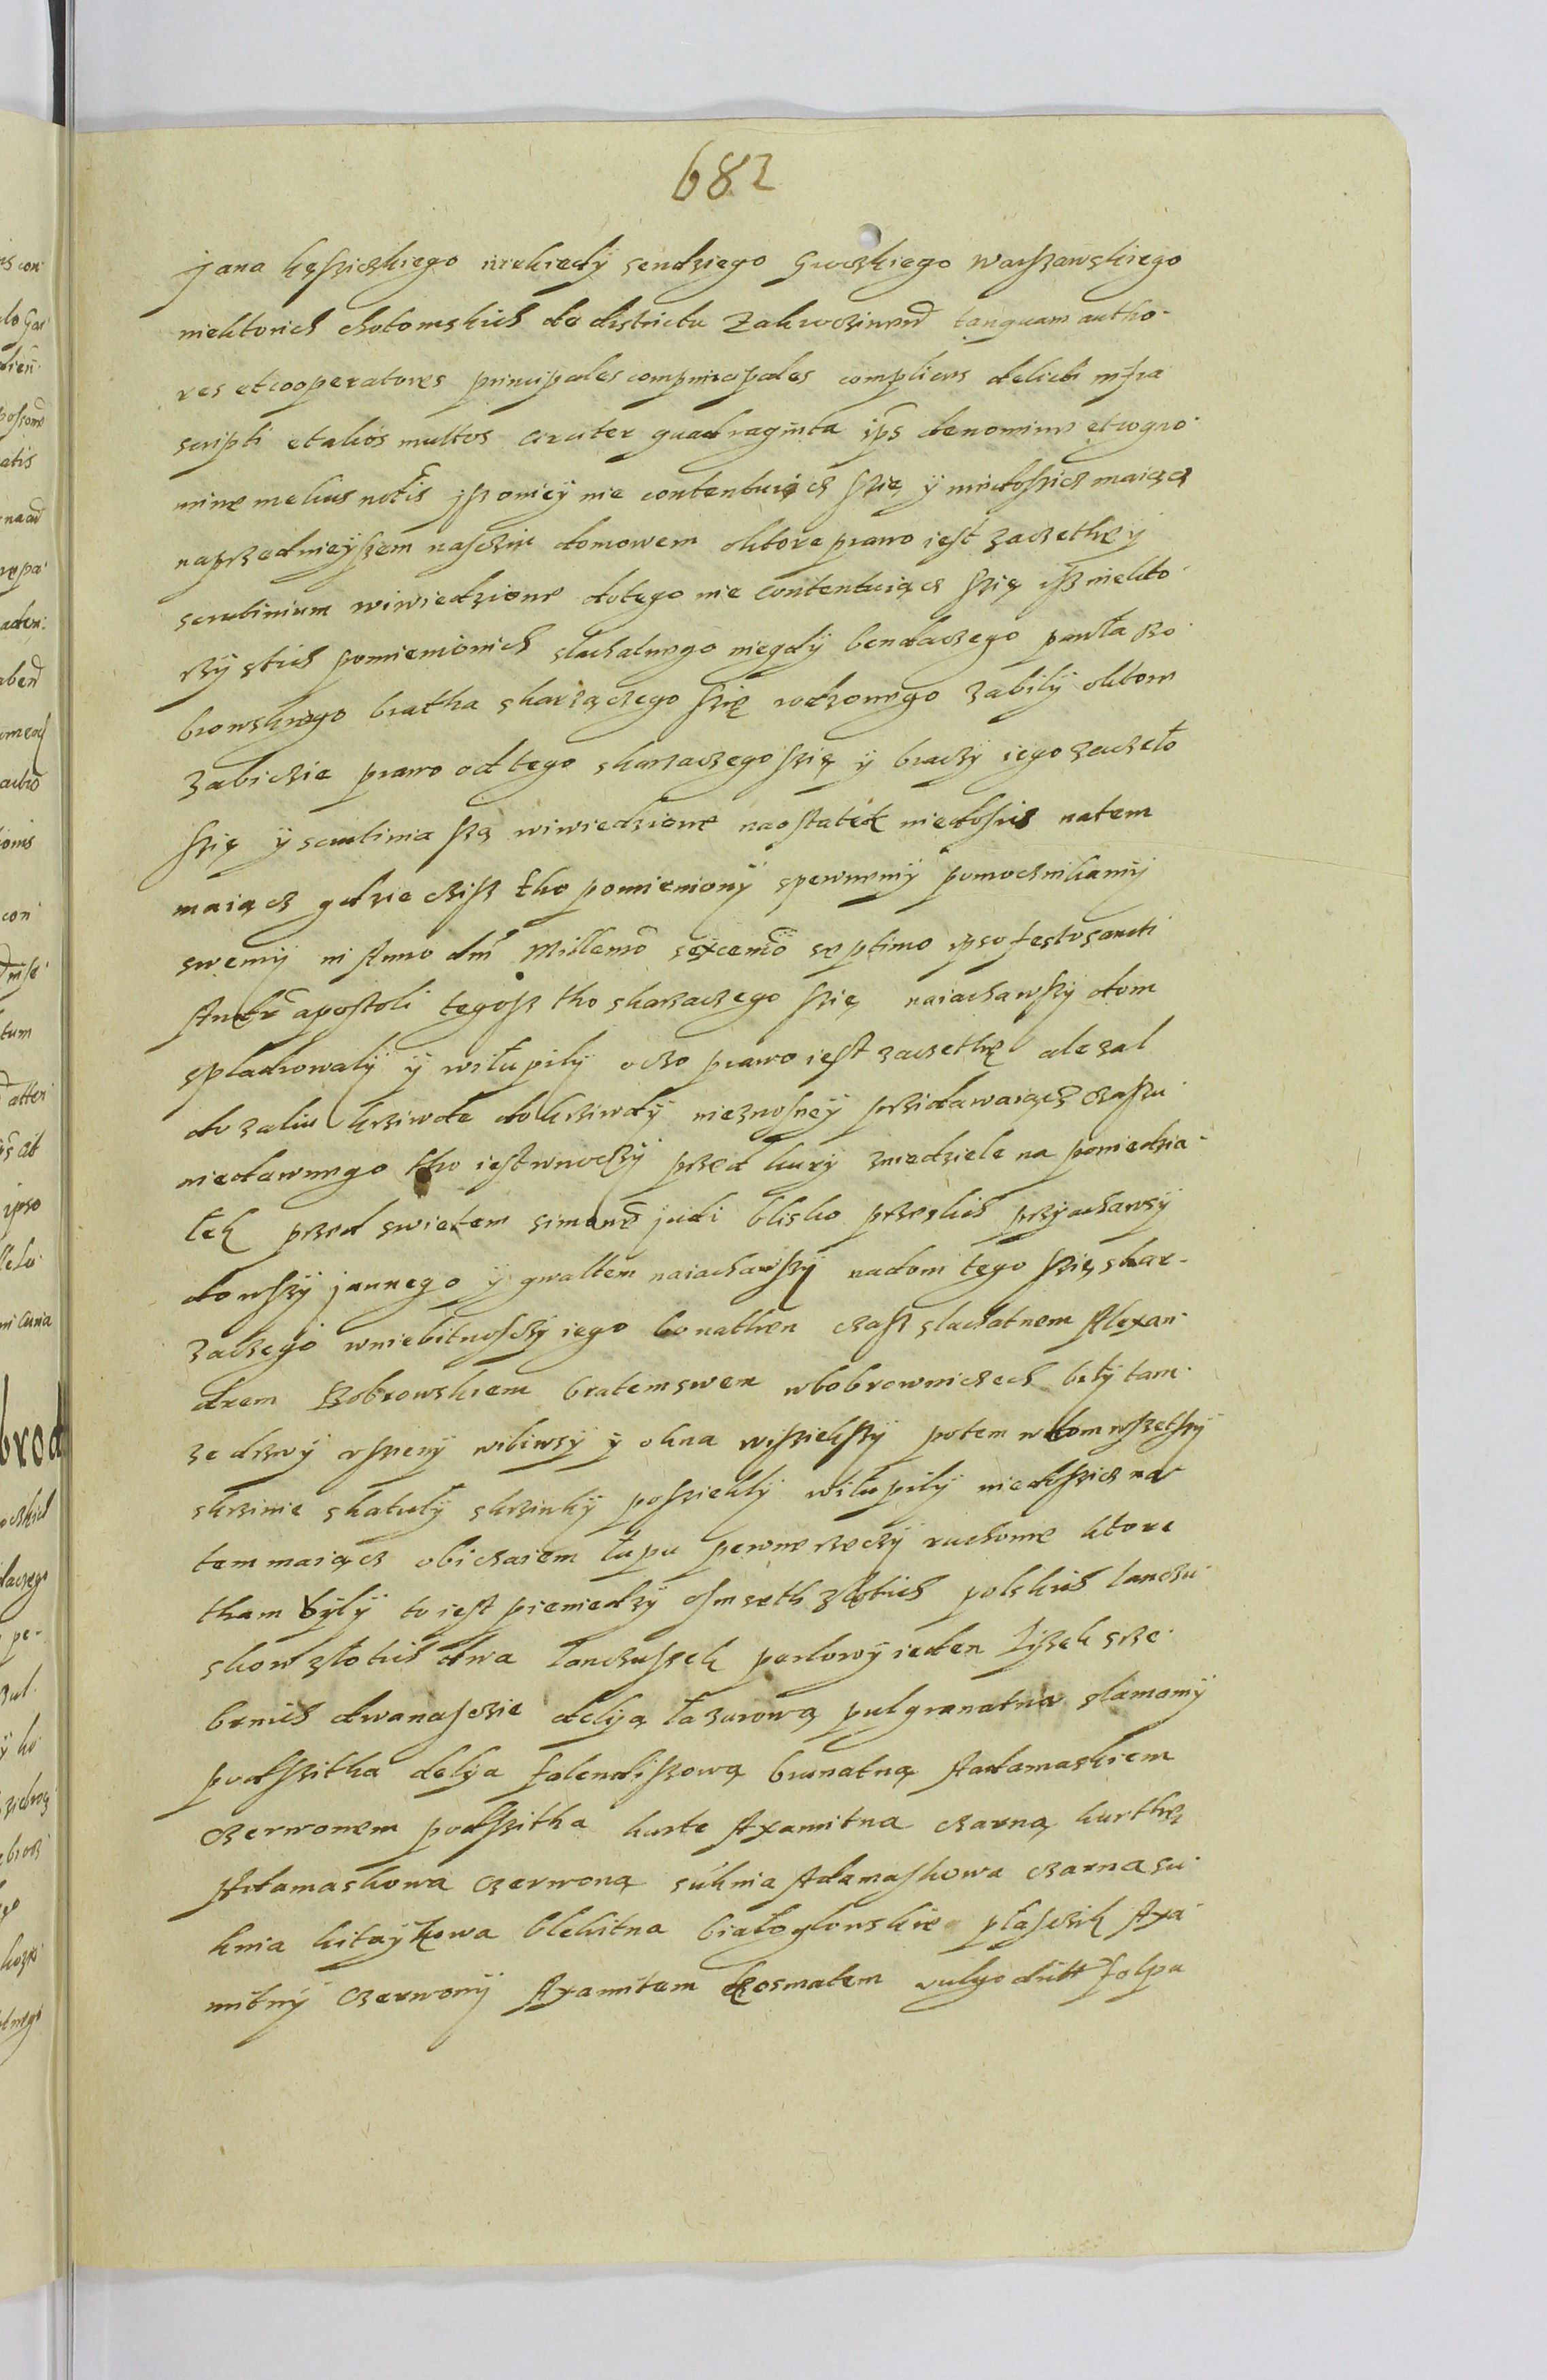 682
Jana kęssiczkiego niekiedÿ sendziego Grodzkiego Warssawskiego
niektorich chotomskich de districtu Zakroczimen tanquam autho-
res et cooperatores principales comprincipales complices delicti infra
scripti et alios multos circiter quadraginta ips de nomine et cogno-
mine melius notis isz onieÿ nie contentuiącz szię ÿ niedossicz maiącz
naprzednieÿszem nascziu domowem oktore prawo iest zaczethe ÿ
scrutinium wiwiedzione dotego nie contentuiącz szię isz niekto-
rzÿ stich pomienionich slachatnego niegdÿ bendaczego pawła szo-
browskiego bratha skarzączego szię rodzonego zabilÿ oktore
zabiczie prawo od tego skarzaczego szię ÿ braczÿ iego zaczeło
szię ÿ scrutinia są wiwiedzione naostatek niedosicz natem
maiącz gdzie czisz tho pomienionÿ spewnemÿ pomocznikamÿ
swemÿ in Anno dni Millemo sexcemo septimo ipso festo sancti
Andr apostoli tegosz tho skarzaczego szię naiachawszÿ dom
spladrowalÿ ÿ wiłupilÿ oczo prawo iest zaczethe ale zal
do zaliu krziwde do krziwdÿ nieznosneÿ przidawaiącz czassu
niedawnego tho iest wnoczÿ przed kurÿ zniedziele na poniedzia-
lek przed swietem simone judi blisko przeslich przÿachawsÿ
donszÿ jannego ÿ gwaltem naiachawszÿ nadom tego szię skar-
zaczego wniebitnosczÿ iego bo nathen czasz slachatnem Alexan-
drem Szobrowskiem bratem swem wbobrownickech bÿlÿ tam-
ze drzwÿ wsienÿ wibiwsÿ ÿ okna wÿsziekszÿ potem wdom wszetszÿ
skrzinie skatułÿ skrzinkÿ poszieklÿ wiłupilÿ niedoszicz na
tem maiącz obiczaiem łupu pewne rzeczÿ ruchome ktore
tham bÿlÿ to iest pieniedzÿ osm seth złotich polskich lanczu-
skow złotich dwa łanczussek perlowÿ ieden Lizek sre-
brnich dwanasczie deliją łazurową pulgranatna slamamÿ
podszitha delija falendiszową brunatną Aadamaskiem
czerwonem podszitha kurte Axamitna czarną kurthę
Adamaskowa czerwoną suknia Adamaskowa czarna su-
knia kitaÿkowa blekitna białogłowskie płasczik Axa-
mitnÿ czerwonÿ Axamitem kosmatem vulgo dictt folpa